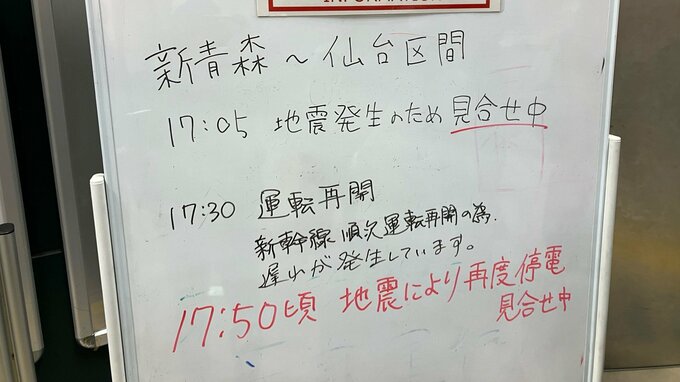 INFORMATION
新青森～仙台区間
17:05 地震発生のため見合せ中
17:30 運転再開
新幹線順次運転再開の為.
遅れが発生しています。
17:50頃 地震により再度停電
見合せ中